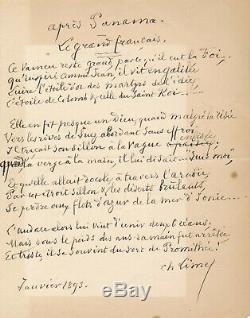 après Panama.
Le grand français.
Ce vaincu reste grand parce qu'il eut la Foi.
Qu'inspiré comme Jean, il vit en
Luire l'étoile d'or des martyrs de l'idée
L'étoile de Colomb & celle du Saint Roi...
Elle en fit presque un Dieu, quand malgré la risée
Vers les rives de Suez abordant sans effroi
Il traçait son sillon à la vague
quand la verge à la main il lui disait : Suis moi
Et qu'elle allait docile à travers l'arabie,
Par cet étroit sillon & les déserts brûlants,
Se perdre aux flots d'azur de la mer d'Ionie...
L'audace alors lui vint d'unir deux océans
Mais sous le poids des ans sa main fut arrêtée
Et triste il se souvint du sort de Prométhée !
Janvier 1893.